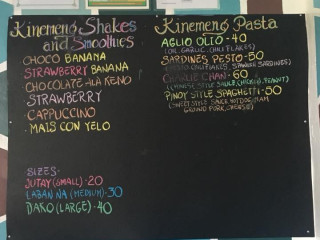 Kinemeng Shakes
and Smoothies
CHOCO BANANA
STRAWBERRY BANANA
CHOCOLATE-ALA KENO
STRAWBERRY
CAPPUCCINO
MAIS CON YELO
SIZES:
JUTAY (SMALL) - 20
LABAN NA (MEDIUM) - 30
DAKO (LARGE) - 40
Kinemeng Pasta
AGLIO OLIO - 40
(OIL, GARLIC, CHILI FLAKES)
SARDINES PESTO - 50
(CHILI FLAKES, SPANISH SARDINES)
CHARLIE CHAN - 60
(CHINESE STYLE SAUCE, CHICKEN, PEANUT)
PINOY STYLE SPAGHETTI - 50
(SWEET STYLE SAUCE, HOTDOG, HAM
GROUND PORK, CHEESE)